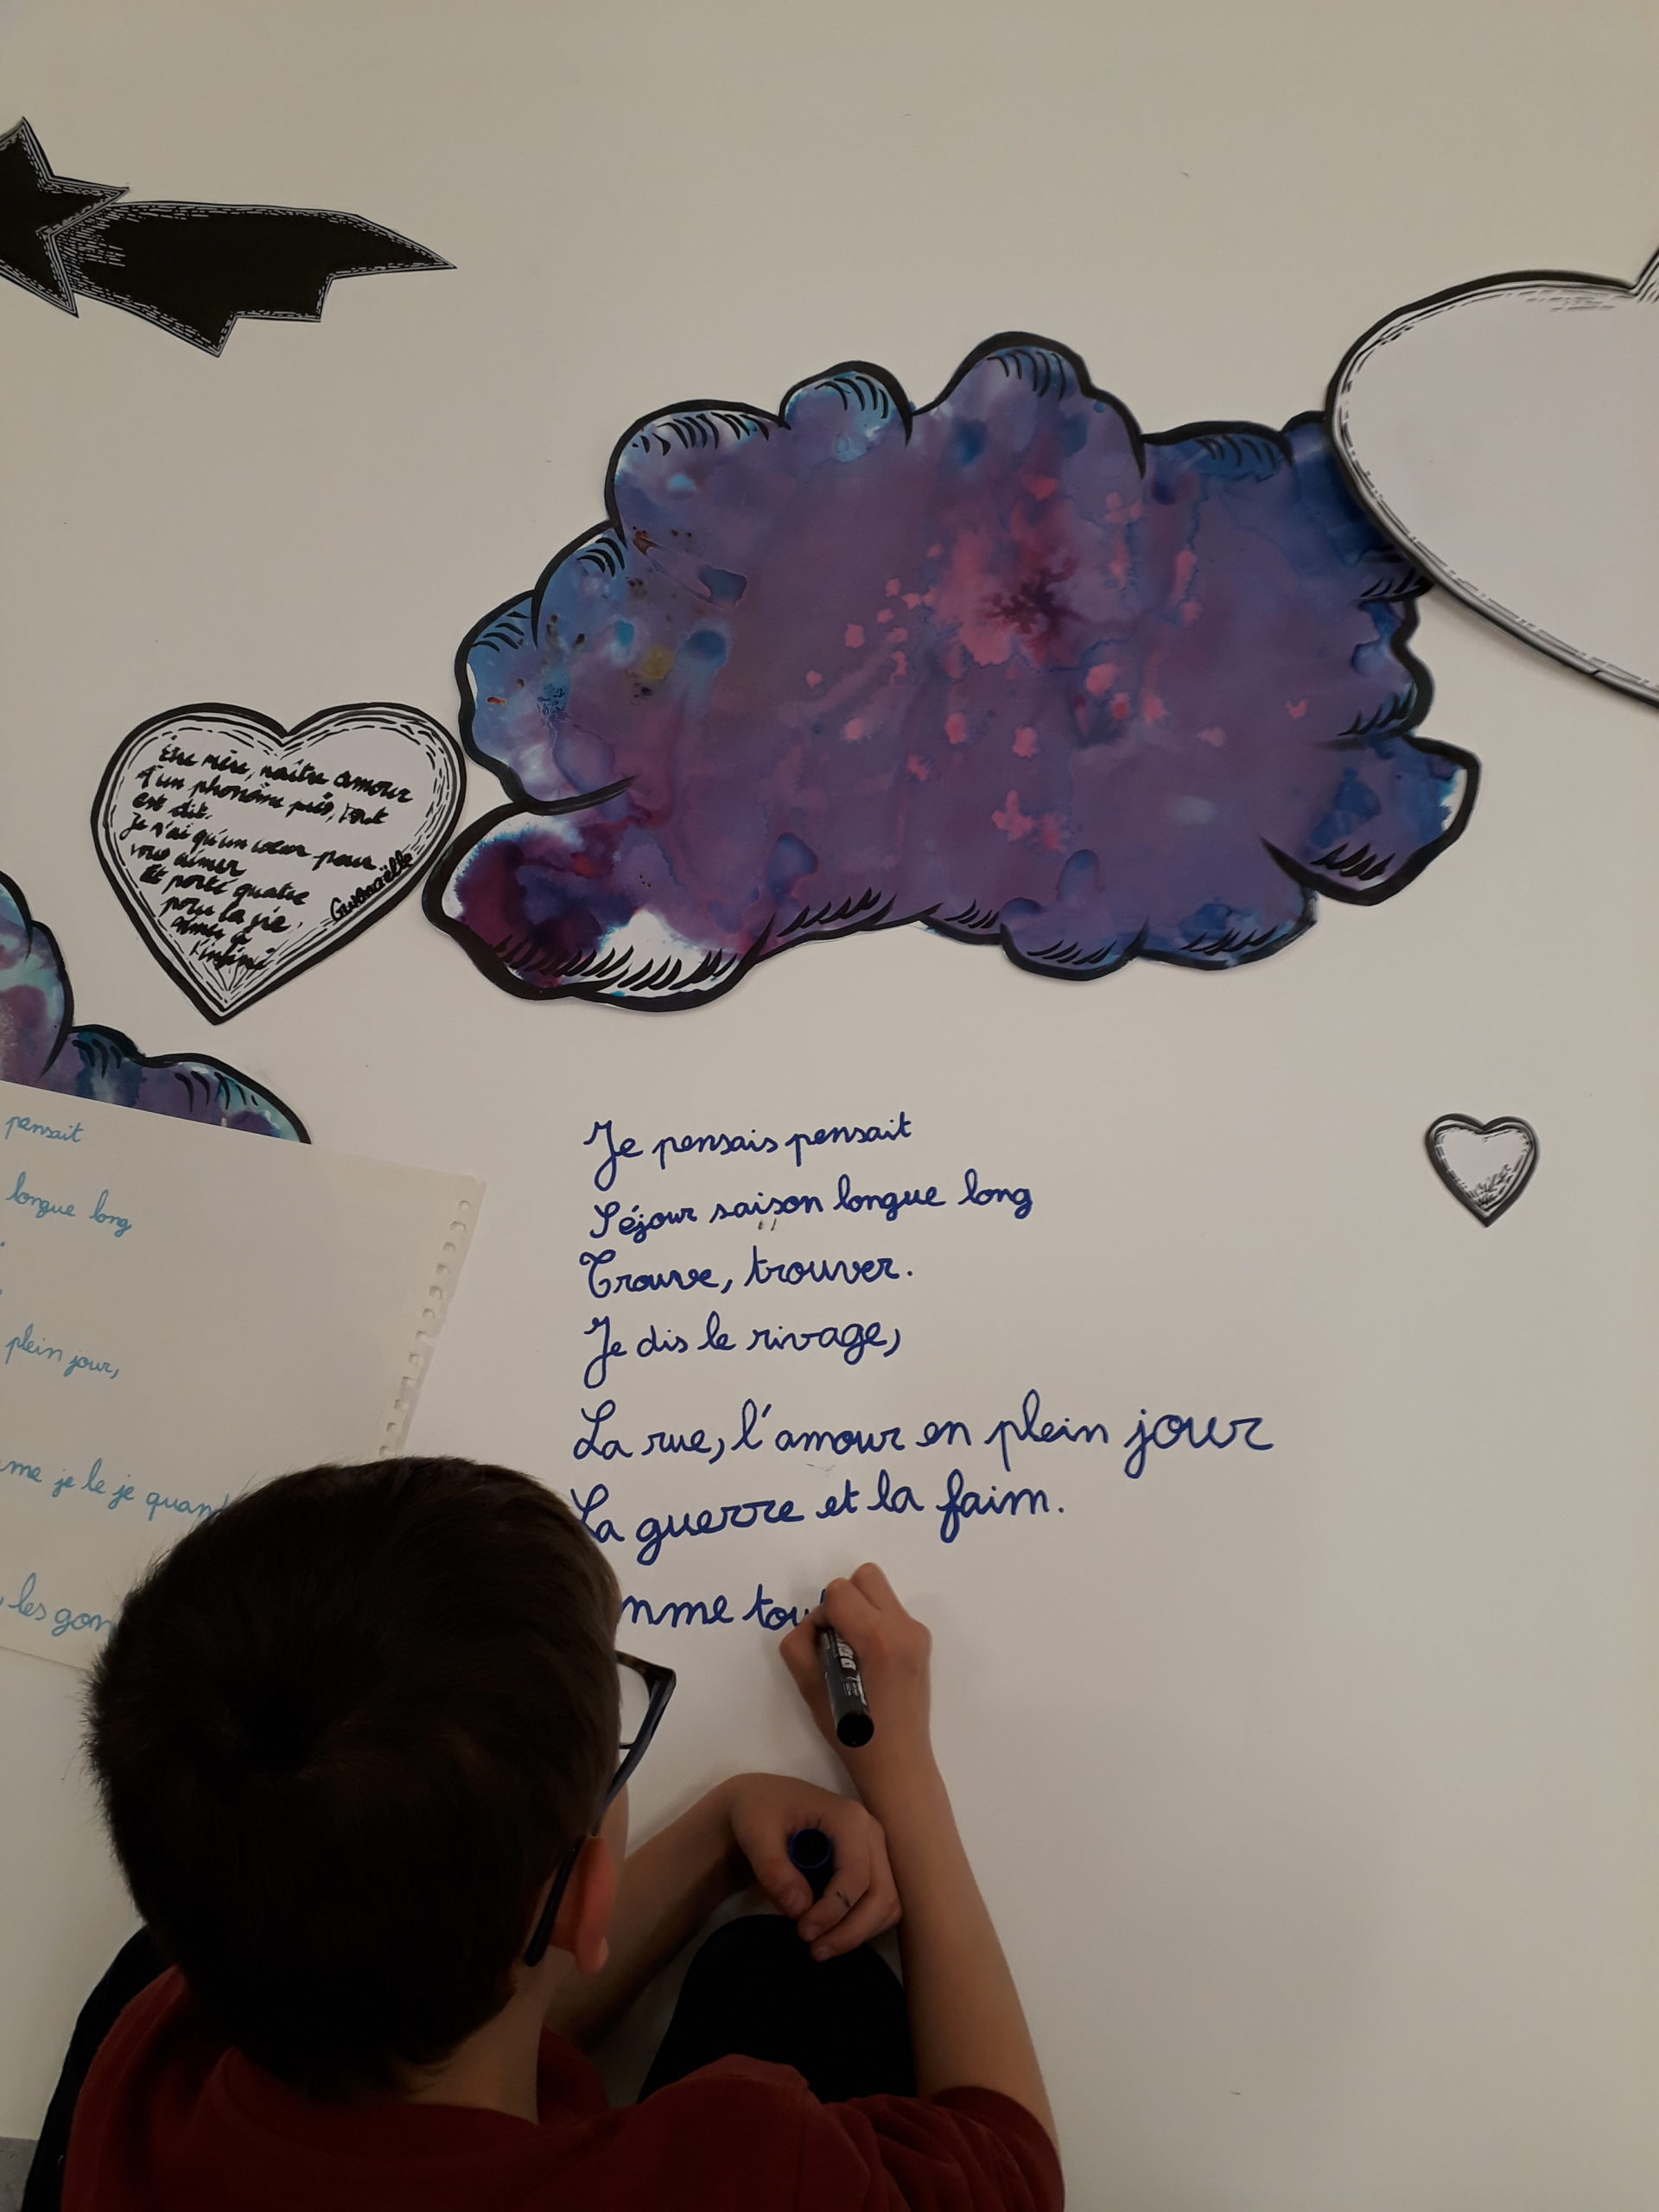 Etre mère, naître amour
d'un phonème près, tout
est dit.
Je n'ai qu'un cœur pour
vous aimer
Et porté quatre
pour la vie.
aimer à
l'infini
Gwénaëlle
pensait
longue long
plein jour,
me je le je quand
les gom
Je pensais pensait
Séjour saison longue long
Trouve, trouver.
Je dis le rivage,
La rue, l'amour en plein jour
La guerre et la faim.
mme tou